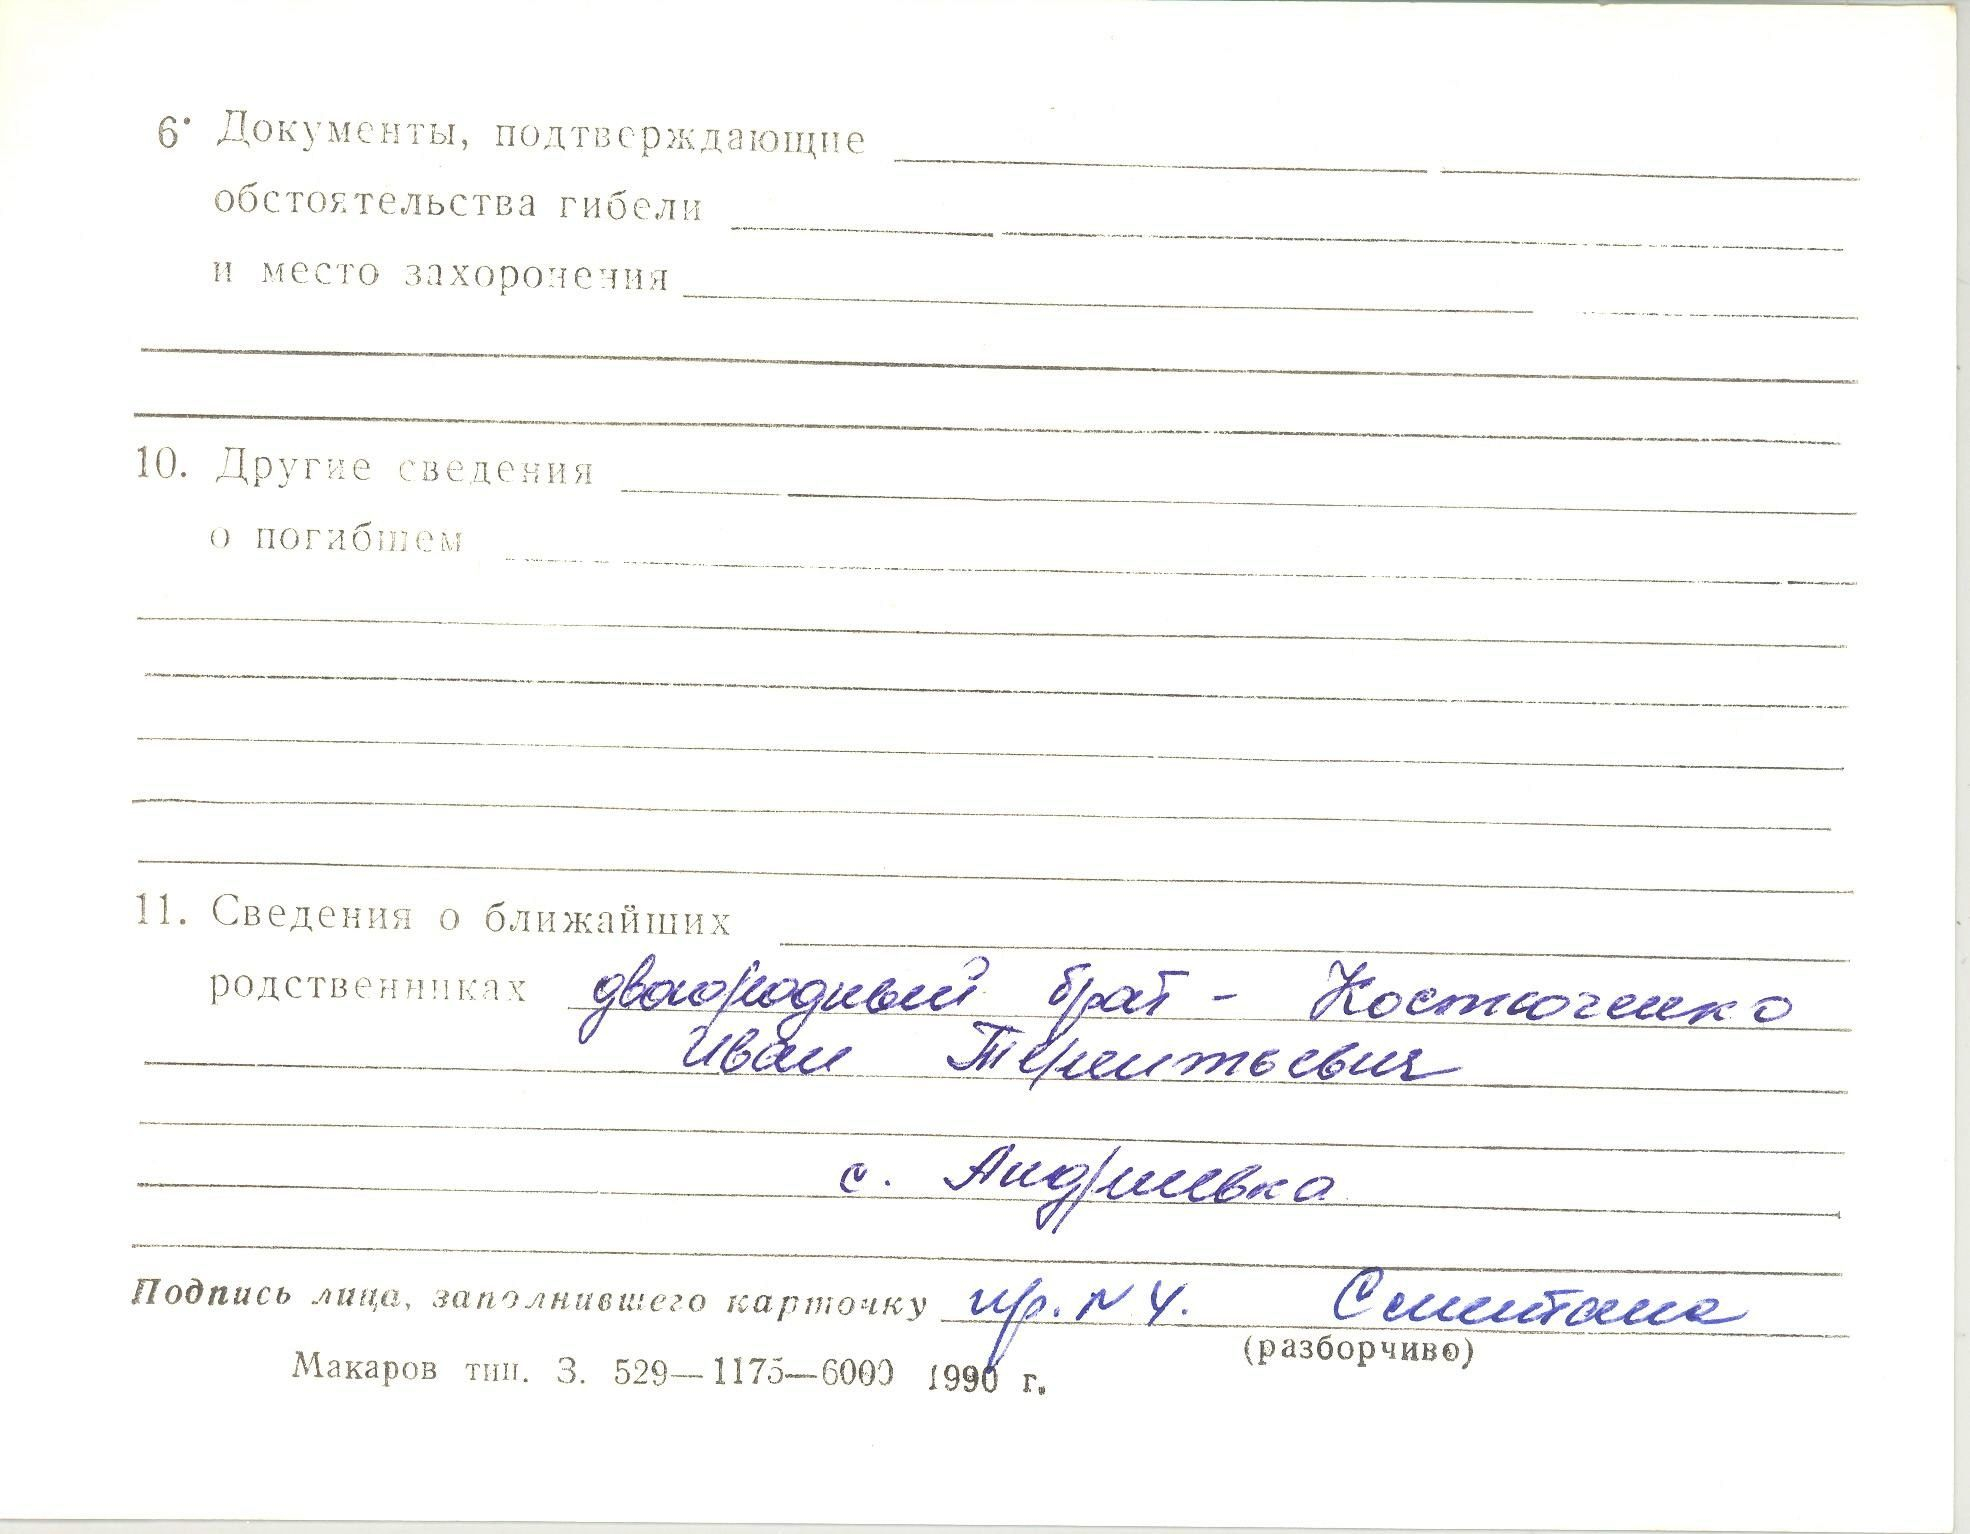 6. Документы, подтверждающие
обстоятельства гибели
и место захоронения
10. Другие сведения
о погибшем
11. Сведения о ближайших
родственниках двоюродный брат - Костюченко
Иван Терентьевич
с. Андриевка
Подпись лица, заполнившего карточку пр. N 4. Сметана
(разборчиво)
Макаров тип. З. 529—1175—6000 1990 г.